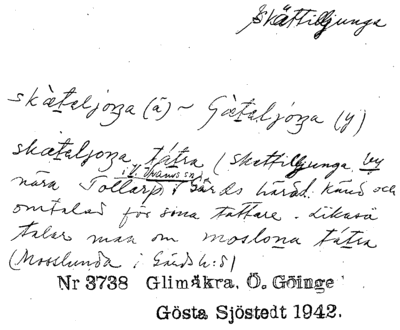 Skättilljunga
skætaljoŋa (ä) ~ Gætaljóŋa (y)
skætaljoŋa tátra (skättilljunga by
i V. Vrams sn
nära Tollarp i Gärds härad. känd och
omtalad för sina tattare. Likaså
talar man om moslona tátra
(Mosslunda i Gärds h:d)
Nr 3738 Glimåkra, Ö. Göinge
Gösta Sjöstedt 1942.